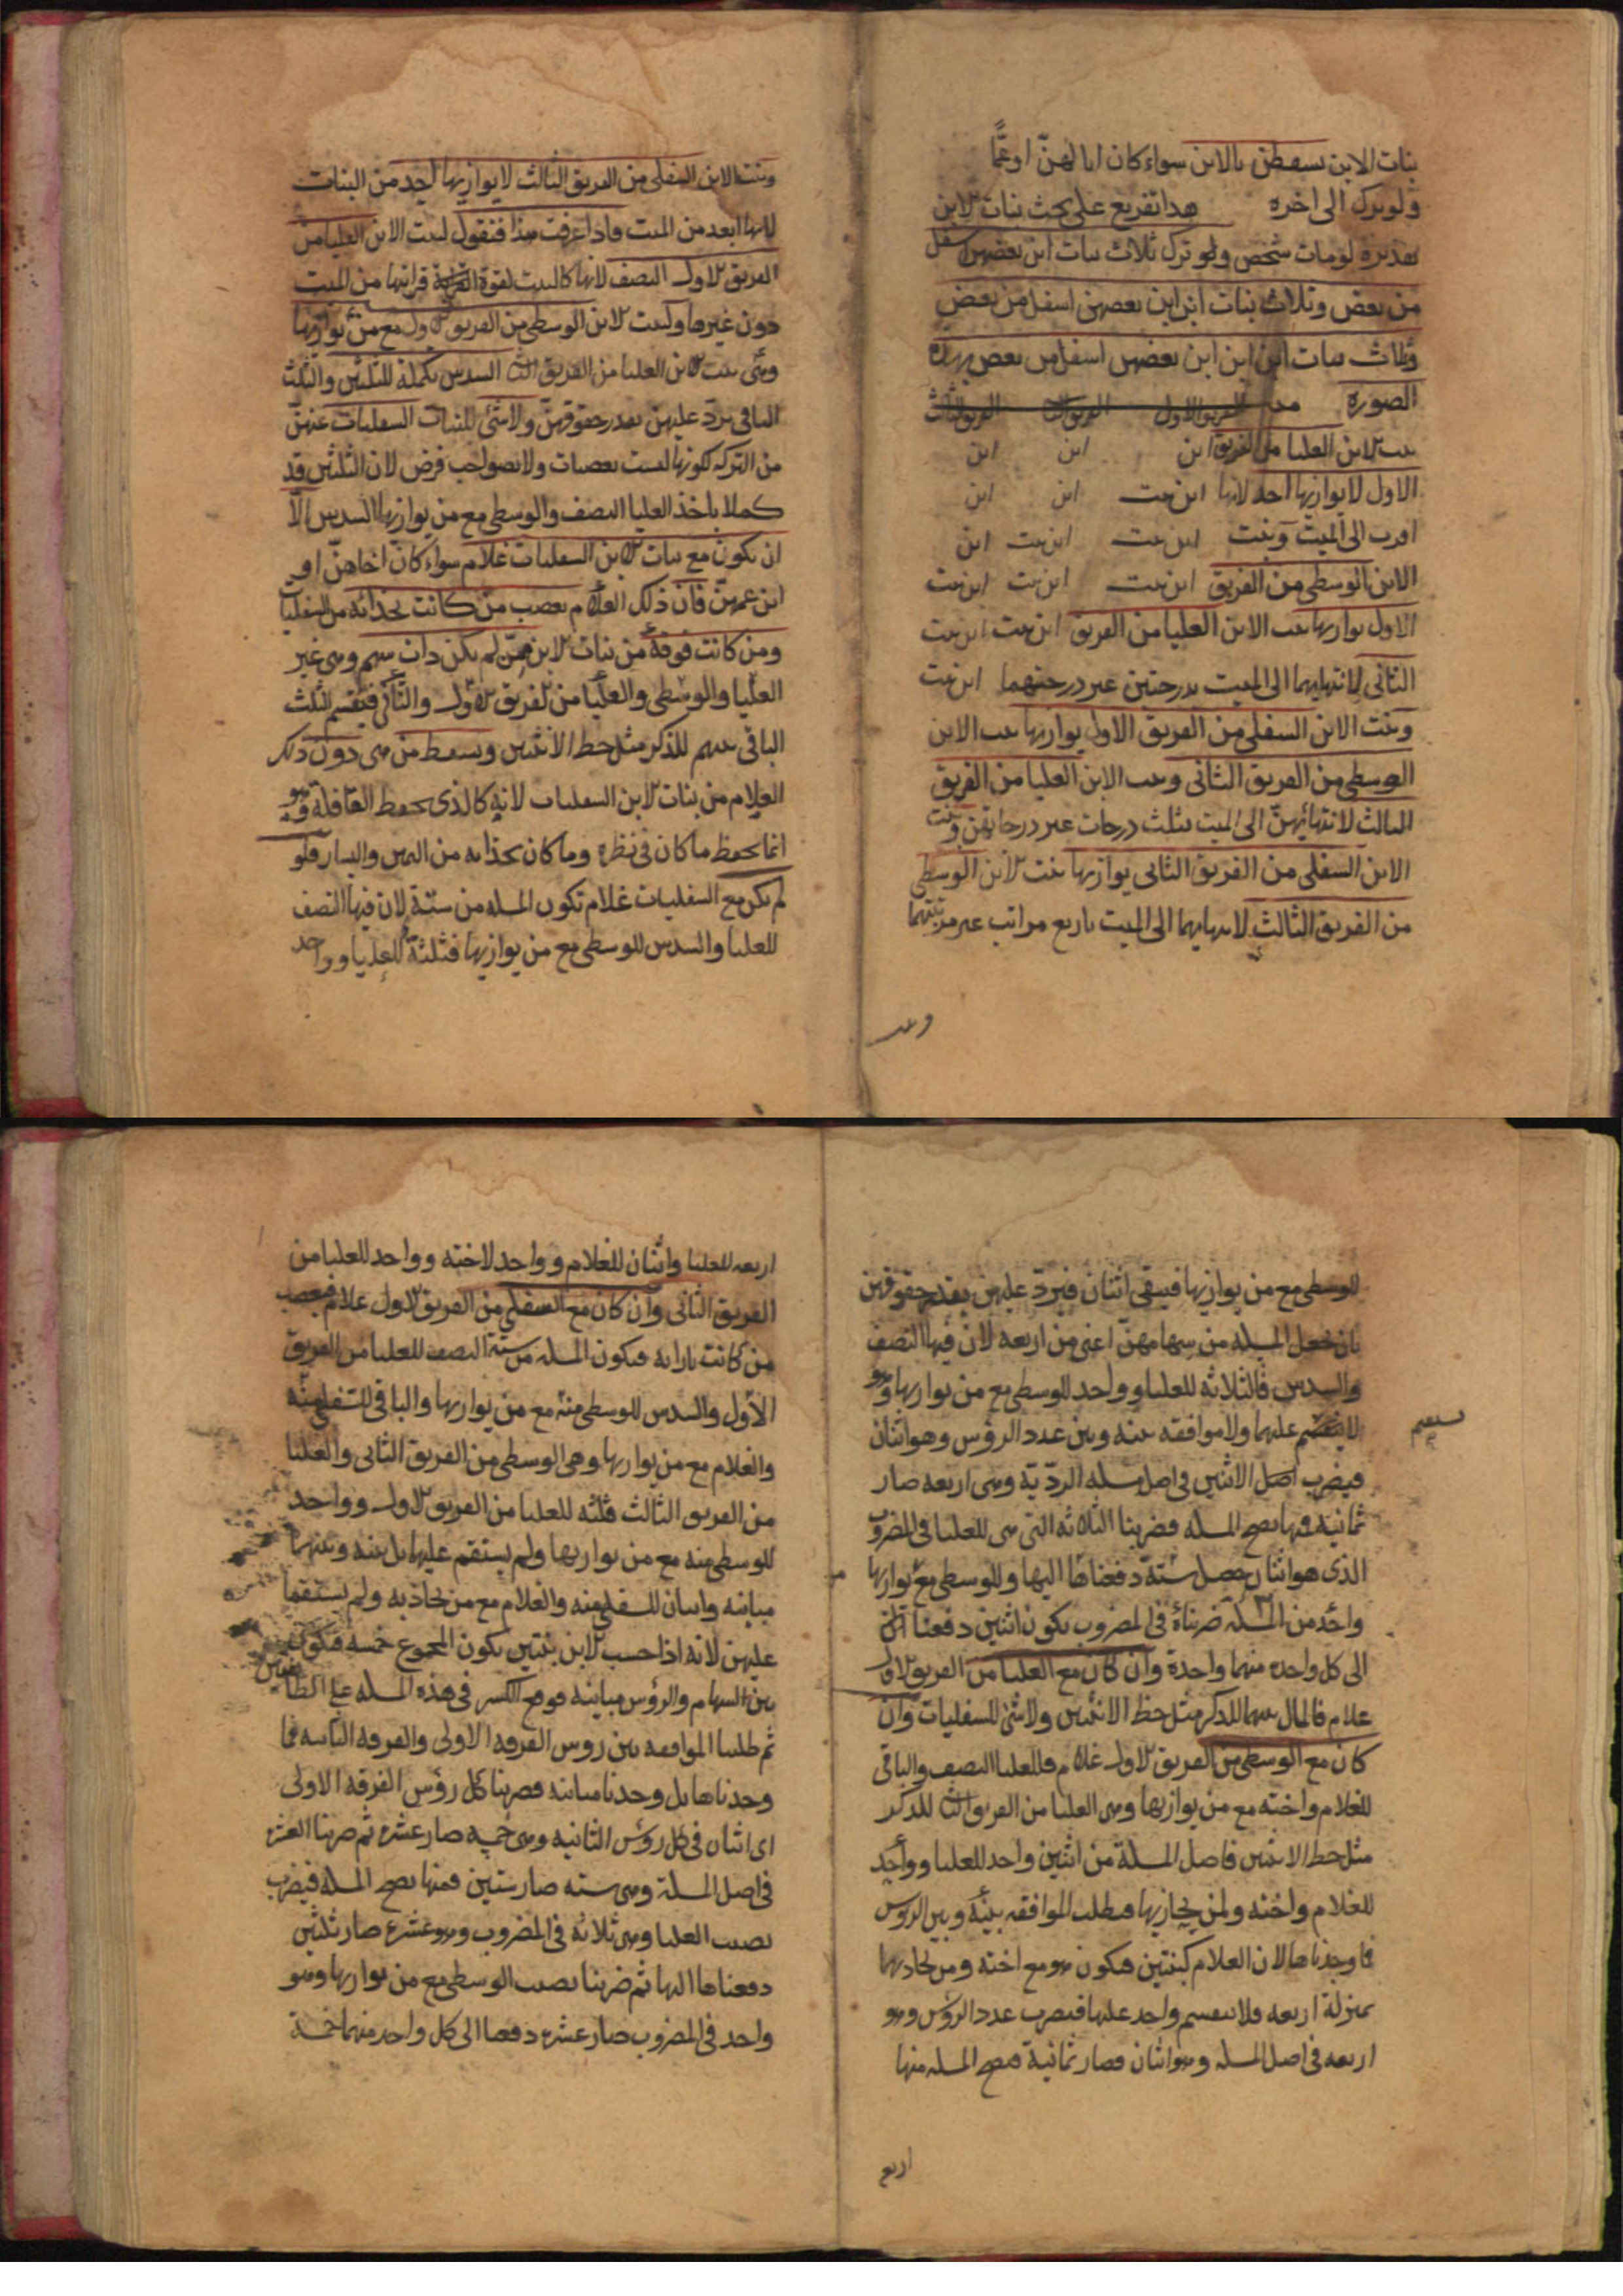 بنات الابن يسقطن بالابن سواء كان ابا لهن او عمّا
ولو ترك الى اخره هذا تفريع على بحث بنات الابن
تقديره لو مات شخص ولو ترك ثلاث بنات ابن بعضهن اسفل
من بعض وثلاث بنات ابن ابن بعضهن اسفل من بعض
وثلاث بنات ابن ابن ابن بعضهن اسفل من بعض بهذه
الصورة الفريق الاول الفريق الثاني الفريق الثالث
بنت الابن العليا من الفريق ابن ابن ابن
الاول لا يوازيها احد لانها ابن بنت ابن ابن
اقرب الى الميت وبنت ابن بنت ابن بنت ابن
الابن الوسطى من الفريق ابن بنت ابن بنت ابن بنت
الاول يوازيها بنت الابن العليا من الفريق ابن بنت ابن بنت
الثانى لانتهايهما الى الميت بدرجتين غير درجتهما ابن بنت
وبنت الابن السفلى من الفريق الاول يوازيها بنت الابن
الوسطى من الفريق الثانى وبنت الابن العليا من الفريق
الثالث لانتهائهنّ الى الميت بثلث درجات غير درجاتهن وبنت
الابن السفلى من الفريق الثانى يوازيها بنت الابن الوسطى
من الفريق الثالث لانتهايهما الى الميت باربع مراتب غير مرتبتهما
وبنت
وبنت الابن السفلى من الفريق الثالث لا يوازيها احد من البنات
لانها ابعد من الميت واذا عرفت هذا فنقول لبنت الابن العليا من
الفريق الاول النصف لانها كالبنت لقوة قرابتها من الميت
دون غيرها ولبنت الابن الوسطى من الفريق الاول مع من يوازيها
وهى بنت الابن العليا من الفريق الثاني السدس تكملة للثلثين والثلث
الباقى يردّ عليهن بقدر حقوقهنّ ولا شئ للبنات السفليات عنهنّ
من التركه لكونها ليست بعصبات ولا بصواحب فرض لان الثلثين قد
كملا باخذ العليا النصف والوسطى مع من يوازيها السدس الا
ان يكون مع بنات الابن السفليات غلام سواء كان اخاهنّ او
ابن عمهنّ فان ذلك الغلام يعصب من كانت بحذائه من السفليات
ومن كانت فوقه من بنات الابن ممّن لم يكن ذات سهم وهى غير
العليا والوسطى والعليا من الفريق الاول والثانى فيقسم الثلث
الباقى بينهم للذكر مثل حظ الانثيين ويسقط من هى دون ذلك
الغلام من بنات الابن السفليات لانه كالذى يحفظ القافلة وهو
انما يحفظ ما كان فى نظره وما كان بحذائه من اليمين واليسار فلو
لم يكن مع السفليات غلام تكون المسله من ستّة لان فيها النصف
للعليا والسدس للوسطى مع من يوازيها فثلثة للعليا وواحد
للوسطى مع من يوازيها فيبقى اثنان فيردّ عليهن بقدر حقوقهن
بان نجعل المسله من سهامهنّ اعنى من اربعه لان فيها النصف
والسدس فالثلاثه للعليا وواحد للوسطى مع من يوازيها وهو
لا ينقسم عليهما ولا موافقه بينه وبين عدد الرؤس وهو اثنان
فيضرب اصل الاثنين فى اصل مسله الردّية وهى اربعه صار
ثمانية فمنها تصح المسله فضربنا الثلاثه التى هى للعليا فى المضروب
الذى هو اثنان حصل ستة دفعناها اليها وللوسطى مع من يوازيها
واحد من المسله ضربناه فى المضروب يكون اثنين دفعنا
الى كل واحده منهما واحدة وان كان مع العليا من الفريق الاول
غلام فالمال بينهما للذكر مثل حظ الانثيين ولا شئ للسفليات وان
كان مع الوسطى من الفريق الاول غلام فللعليا النصف والباقى
للغلام واخته مع من يوازيها وهى العليا من الفريق الثاني للذكر
مثل حظ الانثيين فاصل المسلة من اثنين واحد للعليا وواحد
للغلام واخته ولمن يحاذيها فطلب الموافقه بينه وبين الرؤس
فما وجدناها لان الغلام كبنتين فيكون هو مع اخته ومن يحاذيهما
بمنزلة اربعه فلا ينقسم واحد عليها فيضرب عدد الرؤس وهو
اربعه فى اصل المسله وهو اثنان فصار ثمانية فيصح المسله منها
اربع
اربعه للعليا واثنان للغلام وواحد لاخته وواحد للعليا من
الفريق الثانى وان كان مع السفلى من الفريق الاول غلام فيعصب
من كانت بازائه فيكون المسله من ستة النصف للعليا من الفريق
الاول والسدس للوسطى منه مع من يوازيها والباقى للسفلى منه
والغلام مع من يوازيها وهى الوسطى من الفريق الثانى والعليا
من الفريق الثالث فثلثه للعليا من الفريق الاول وواحد
للوسطى منه مع من يوازيها ولم يستقم عليهما بل بينه وبينهما
مباينه واثنان للسفلى منه والغلام مع من يحاذيه ولم يستقما
عليهن لانه اذا حسب الابن بنتين يكون المجموع خمسه فيكون
بين السهام والرؤس مباينه فوقع الكسر فى هذه المسله على الطائفتين
ثم طلبنا الموافقه بين رؤس الفرقه الاولى والفرقه الثانيه فما
وجدناها بل وجدنا مباينه فضربنا كل رؤس الفرقه الاولى
اى اثنان فى كل رؤس الثانيه وهى خمسه صار عشره ثم ضربنا العشره
فى اصل المسلة وهى سته صار ستين فمنها تصح المسله فيضرب
نصيب العليا وهى ثلاثه فى المضروب وهو عشره صار ثلثين
دفعناها اليها ثم ضربنا نصيب الوسطى مع من يوازيها وهو
واحد فى المضروب صار عشره دفعنا الى كل واحد منهما خمسة